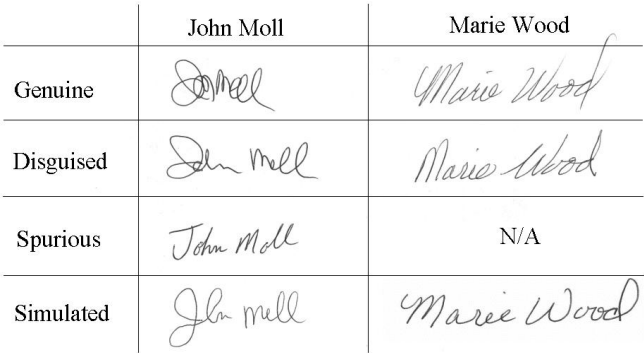 John Moll Marie Wood
Genuine John Moll Marie Wood
Disguised John Moll Marie Wood
Spurious John Moll N/A
Simulated John Moll Marie Wood